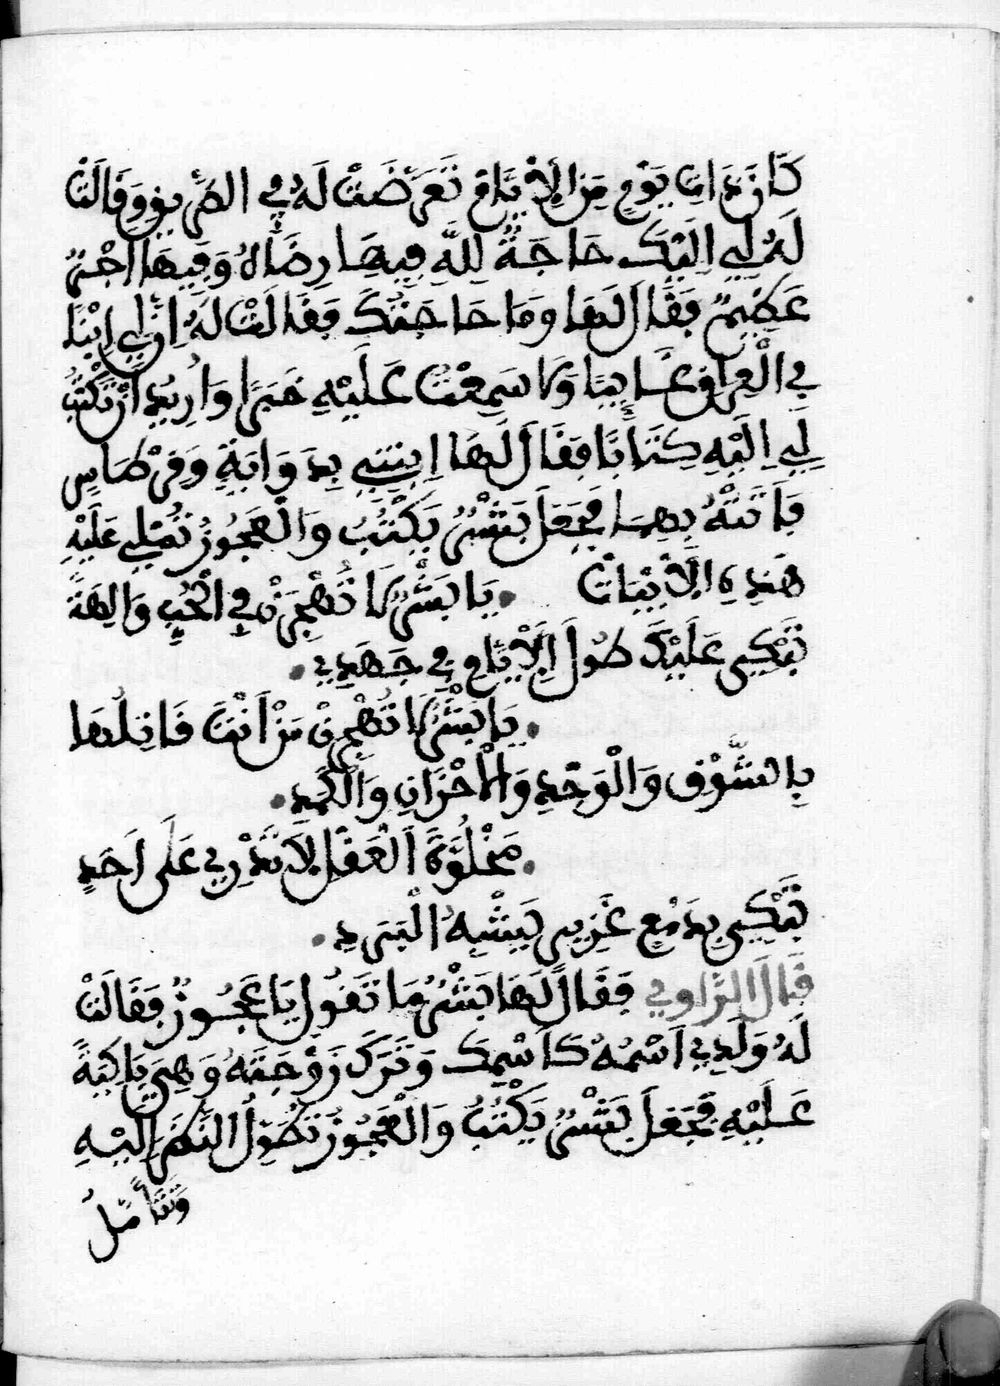 كَانَ ذَاتَ يَوْمٍ مِنَ الْأَيَّامِ تَعَرَّضَتْ لَهُ فِي الطَّرِيقِ وَقَالَتْ
لَهُ لِي إِلَيْكَ حَاجَةٌ لِلَّهِ فِيهَا رِضَاهُ وَفِيهَا أَجْرٌ
عَظِيمٌ فَقَالَ لَهَا وَمَا حَاجَتُكَ فَقَالَتْ لَهُ إِنَّ لِي ابْنًا
فِي الْعِرَاقِ غَايِبًا وَلَا سَمِعْتُ عَلَيْهِ خَبَرًا وَأُرِيدُ أَنْ تَكْتُبَ
لِي إِلَيْهِ كِتَابًا فَقَالَ لَهَا ايتِنِي بِدَوَايَةٍ وَقِرْطَاسٍ
فَأَتَتْهُ بِهِمَا فَجَعَلَ بَشْرٌ يَكْتُبُ وَالْعَجُوزُ تُمْلِي عَلَيْهِ
هَذِهِ الْأَبْيَاتْ . يَا بَشْرُ لَا تُهْجِرَنْ فِي الْحُبِّ وَالِهَةً
تَبْكِي عَلَيْكَ طُولَ الْأَيَّامِ فِي جَهَدِي .
. يَا بَشْرُ لَا تَهْجُرْنَ مَنْ أَنْتَ قَاتِلُهَا
بِالشَّوْقِ وَالْوَجْدِ وَالْأَحْزَانِ وَالْكَمَدِ .
. مَخْلُوَّةَ الْعَقْلِ لَا تَدْرِي عَلَى أَحَدٍ
تَبْكِي بِدَمْعٍ غَزِيرٍ يَشْبِهُ الْبَرَدِ .
قَالَ الرَّاوِي فَقَالَ لَهَا بَشْرُ مَا تَقُولُ يَا عَجُوزُ فَقَالَتْ
لَهُ وَلَدِي اسْمُهُ كَاسْمِكَ وَتَرَكَ زَوْجَتَهُ وَهِيَ بَاكِيَةً
عَلَيْهِ فَجَعَلَ بَشْرٌ يَكْتُبُ وَالْعَجُوزُ تَطُولُ النَّظَرَ إِلَيْهِ
وَتَتَأَمَّلُ